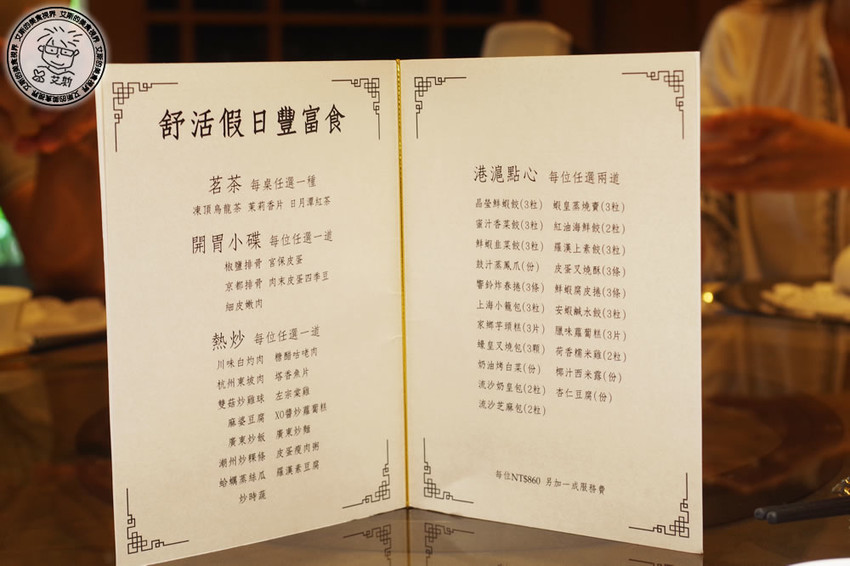 艾斯的美食視界
艾斯
舒活假日豐富食
茗茶 每桌任選一種
凍頂烏龍茶 茉莉香片 日月潭紅茶
開胃小碟 每位任選一道
椒鹽排骨 宮保皮蛋
京都排骨 肉末皮蛋四季豆
細皮嫩肉
熱炒 每位任選一道
川味白灼肉 糖醋咕咾肉
杭州東坡肉 塔香魚片
雙菇炒雞球 左宗棠雞
麻婆豆腐 XO醬炒蘿蔔糕
廣東炒飯 廣東炒麵
潮州炒粿條 皮蛋瘦肉粥
蛤蠣蒸絲瓜 羅漢素豆腐
炒時蔬
港滬點心 每位任選兩道
晶瑩鮮蝦餃(3粒) 蝦皇蒸燒賣(3粒)
蜜汁香菜餃(3粒) 紅油海鮮餃(2粒)
鮮蝦韭菜餃(3粒) 羅漢上素餃(3粒)
豉汁蒸鳳爪(份) 皮蛋叉燒酥(3條)
響鈴炸春捲(3條) 鮮蝦腐皮捲(3條)
上海小籠包(3粒) 安蝦鹹水餃(3粒)
家鄉芋頭糕(3片) 臘味蘿蔔糕(3片)
蠔皇叉燒包(3顆) 荷香糯米雞(2粒)
奶油烤白菜(份) 椰汁西米露(份)
流沙奶皇包(2粒) 杏仁豆腐(份)
流沙芝麻包(2粒)
每位NT$860 另加一成服務費